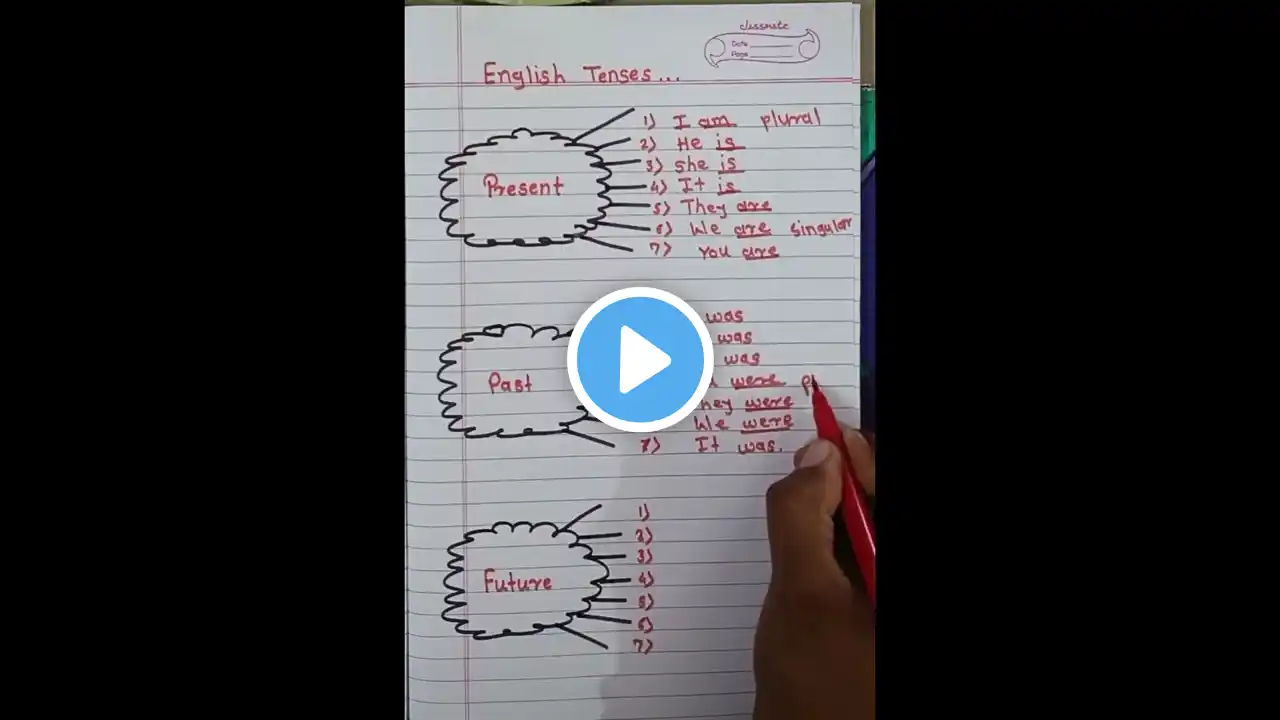 classmate
Date
Page
English Tenses...
Present
1) I am plural
2) He is
3) she is
4) It is
5) They are
6) We are singular
7) You are
Past
was
was
was
were
were
We were
7) It was.
Future
1)
2)
3)
4)
5)
6)
7)